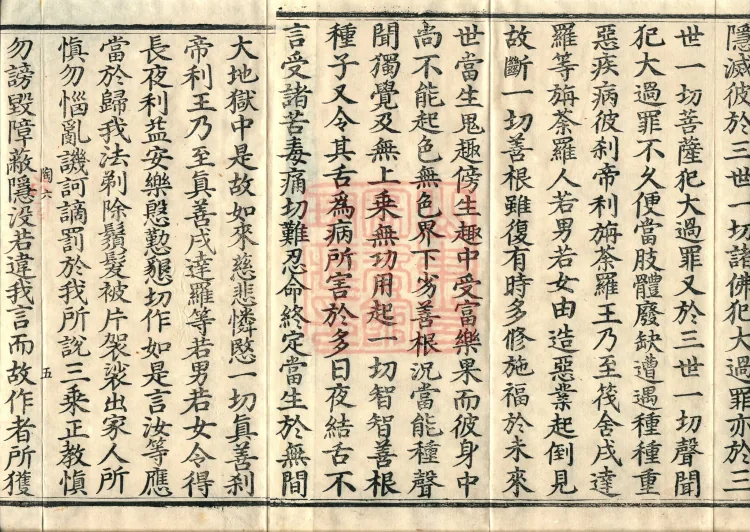 隱滅彼於三世一切諸佛犯大過罪亦於三
世一切菩薩犯大過罪又於三世一切聲聞
犯大過罪不久便當肢體廢缺遭遇種種重
惡疾病彼剎帝利旃荼羅王乃至筏舍戌達
羅等旃荼羅人若男若女由造惡業起倒見
故斷一切善根雖復有時多修施福於未來
世當生鬼趣傍生趣中受富樂果而彼身中
尚不能起色無色界下劣善根況當能種聲
聞獨覺及無上乘無功用起一切智智善根
種子又令其舌為病所害於多日夜結舌不
言受諸苦毒痛切難忍命終定當生於無間
大地獄中是故如來慈悲憐愍一切真善剎
帝利王乃至真善戌達羅等若男若女令得
長夜利益安樂慇懃懇切作如是言汝等應
當於歸我法剃除鬚髮被片袈裟出家人所
慎勿惱亂譏訶謫罰於我所說三乘正教慎
陶六
五
勿謗毀障蔽隱沒若違我言而故作者所獲